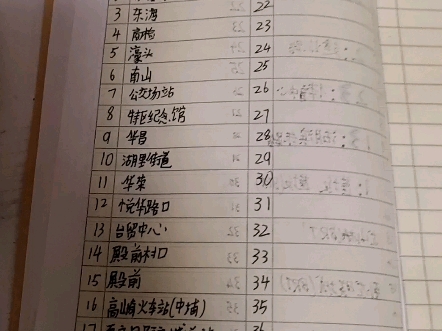 3 东海 22
4 商检 23
5 濠头 24
6 南山 25
7 公交场站 26
8 特区纪念馆 27
9 华昌 28
10 湖里街道 29
11 华荣 30
12 悦华路口 31
13 台贸中心 32
14 殿前村口 33
15 殿前 34
16 高崎火车站(中埔) 35